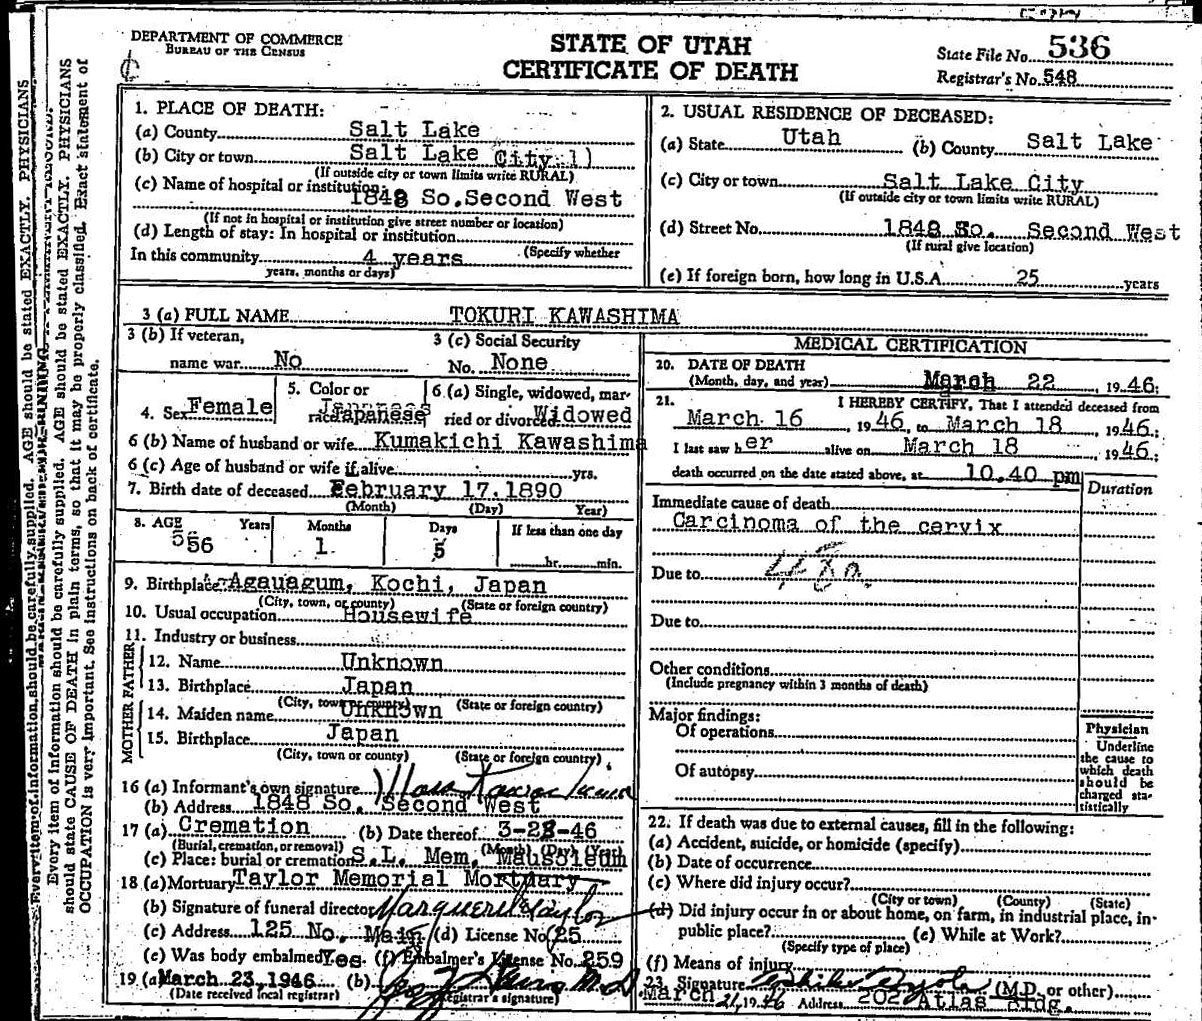 DEPARTMENT OF COMMERCE
BUREAU OF THE CENSUS
STATE OF UTAH
CERTIFICATE OF DEATH
State File No. 536
Registrar's No. 548
Every item of information should be carefully supplied. AGE should be stated EXACTLY. PHYSICIANS
should state CAUSE OF DEATH in plain terms, so that it may be properly classified. Exact statement of
OCCUPATION is very important. See instructions on back of certificate.
1. PLACE OF DEATH:
(a) County Salt Lake
(b) City or town Salt Lake City
(If outside city or town limits write RURAL)
(c) Name of hospital or institution:
1848 So. Second West
(If not in hospital or institution give street number or location)
(d) Length of stay: In hospital or institution
(Specify whether
In this community 4 years
years, months or days)
2. USUAL RESIDENCE OF DECEASED:
(a) State Utah (b) County Salt Lake
(c) City or town Salt Lake City
(If outside city or town limits write RURAL)
(d) Street No. 1848 So. Second West
(If rural give location)
(e) If foreign born, how long in U.S.A. 25 years
3 (a) FULL NAME TOKURI KAWASHIMA
3 (b) If veteran,
name war No
3 (c) Social Security
No. None
4. Sex Female
5. Color or
race Japanese
6 (a) Single, widowed, mar-
ried or divorced Widowed
6 (b) Name of husband or wife Kumakichi Kawashima
6 (c) Age of husband or wife if alive yrs.
7. Birth date of deceased February 17, 1890
(Month) (Day) Year)
8. AGE Years Months Days If less than one day
56 1 5 hr. min.
9. Birthplace Agauagum, Kochi, Japan
(City, town, or county) (State or foreign country)
10. Usual occupation Housewife
11. Industry or business
FATHER
12. Name Unknown
13. Birthplace Japan
(City, town or county) (State or foreign country)
MOTHER
14. Maiden name Unknown
15. Birthplace Japan
(City, town or county) (State or foreign country)
16 (a) Informant's own signature
(b) Address 1848 So. Second West
17 (a) Cremation (b) Date thereof 3-28-46
(Burial, cremation, or removal) (Month) (Day) (Year)
(c) Place: burial or cremation S.L. Mem. Mausoleum
18 (a) Mortuary Taylor Memorial Mortuary
(b) Signature of funeral director Taylor
(c) Address 125 No. Main (d) License No. 25
(e) Was body embalmed Yes (f) Embalmer's License No. 259
19 (a) March 23, 1946 (b) M.D.
(Date received local registrar) (Registrar's signature)
MEDICAL CERTIFICATION
20. DATE OF DEATH
(Month, day, and year) March 22, 1946;
21. I HEREBY CERTIFY, That I attended deceased from
March 16 1946, to March 18 1946;
I last saw her alive on March 18 1946;
death occurred on the date stated above, at 10.40 pm
Duration
Immediate cause of death
Carcinoma of the cervix
Due to
Due to
Other conditions
(Include pregnancy within 3 months of death)
Major findings:
Of operations
Of autopsy
Physician
Underline
the cause to
which death
should be
charged sta-
tistically
22. If death was due to external causes, fill in the following:
(a) Accident, suicide, or homicide (specify)
(b) Date of occurrence
(c) Where did injury occur?
(City or town) (County) (State)
(d) Did injury occur in or about home, on farm, in industrial place, in
public place? (e) While at Work?
(Specify type of place)
(f) Means of injury
23. Signature (M.D. or other)
March 21, 1946 Address 202 Atlas Bldg.